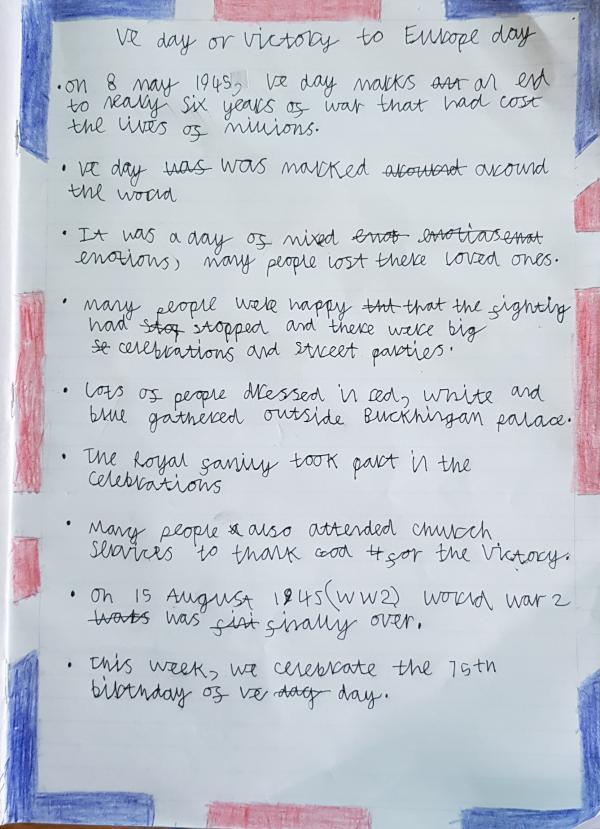 VE day or Victory to Europe day
• On 8 may 1945, VE day marks an end
to nearly six years of war that had cost
the lives of millions.
• VE day was marked around
the world
• It was a day of mixed
emotions, many people lost there loved ones.
• Many people were happy that the fighting
had stopped and there were big
celebrations and street parties.
• Lots of people dressed in red, white and
blue gathered outside Buckhingam palace.
• The Royal family took part in the
celebrations
• Many people also attended church
services to thank God for the victory.
• On 15 August 1945 (WW2) world war 2
was finally over.
• This week, we celebrate the 75th
birthday of VE day.